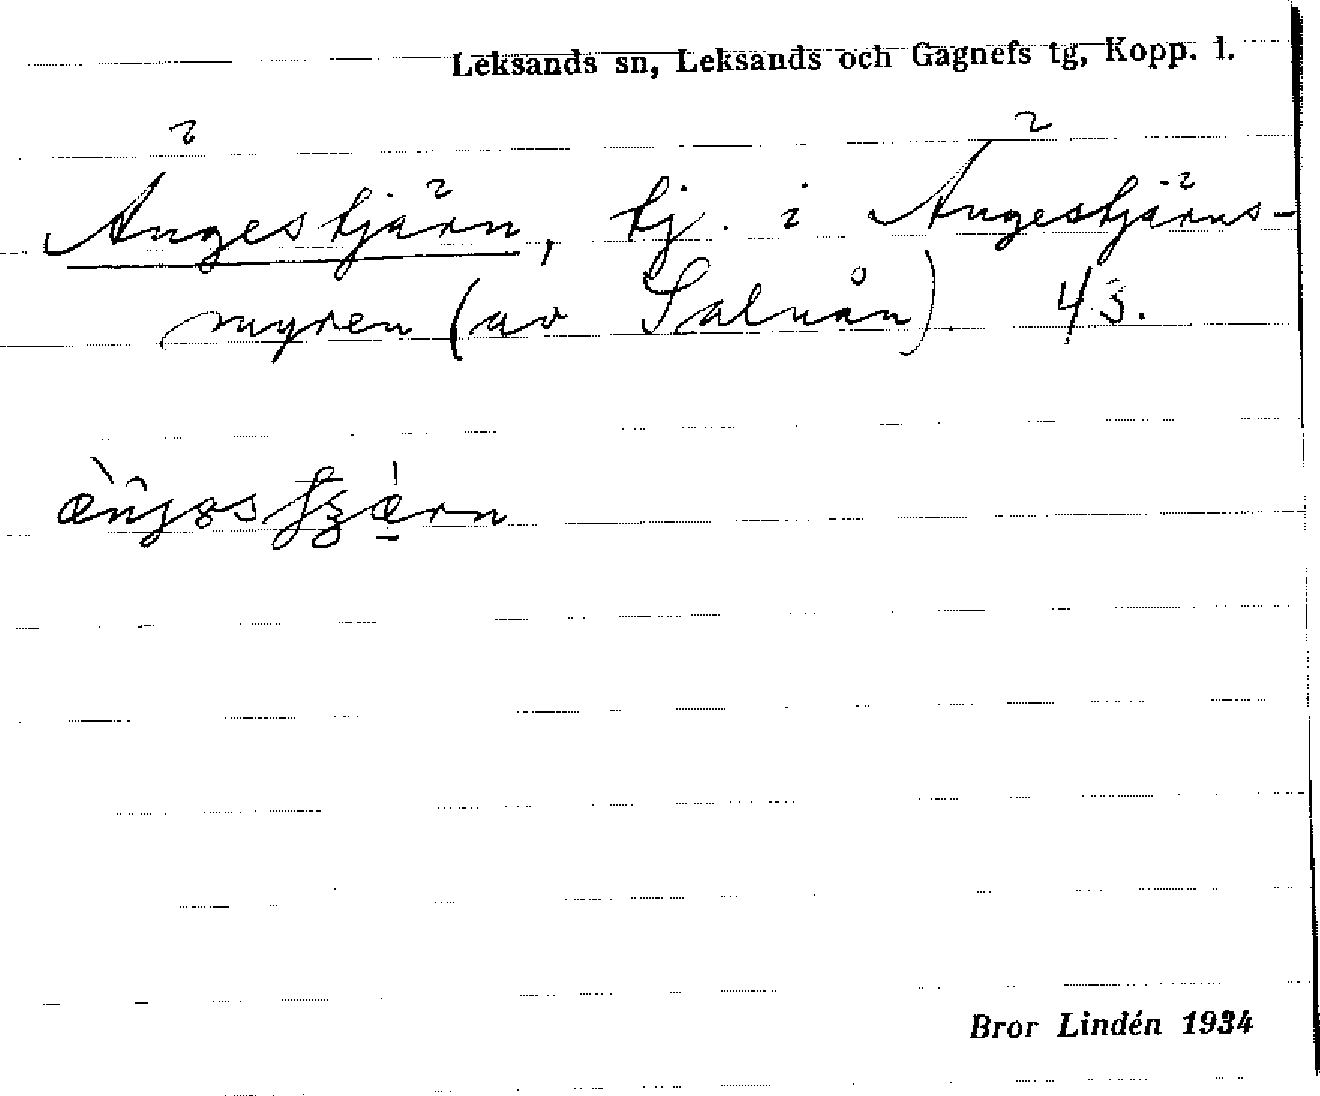 Leksands sn, Leksands och Gagnefs tg, Kopp. l.
Ängestjärn, tj. i Ängestjärns-
myren (av Salnån). 43.
Bror Lindén 1934